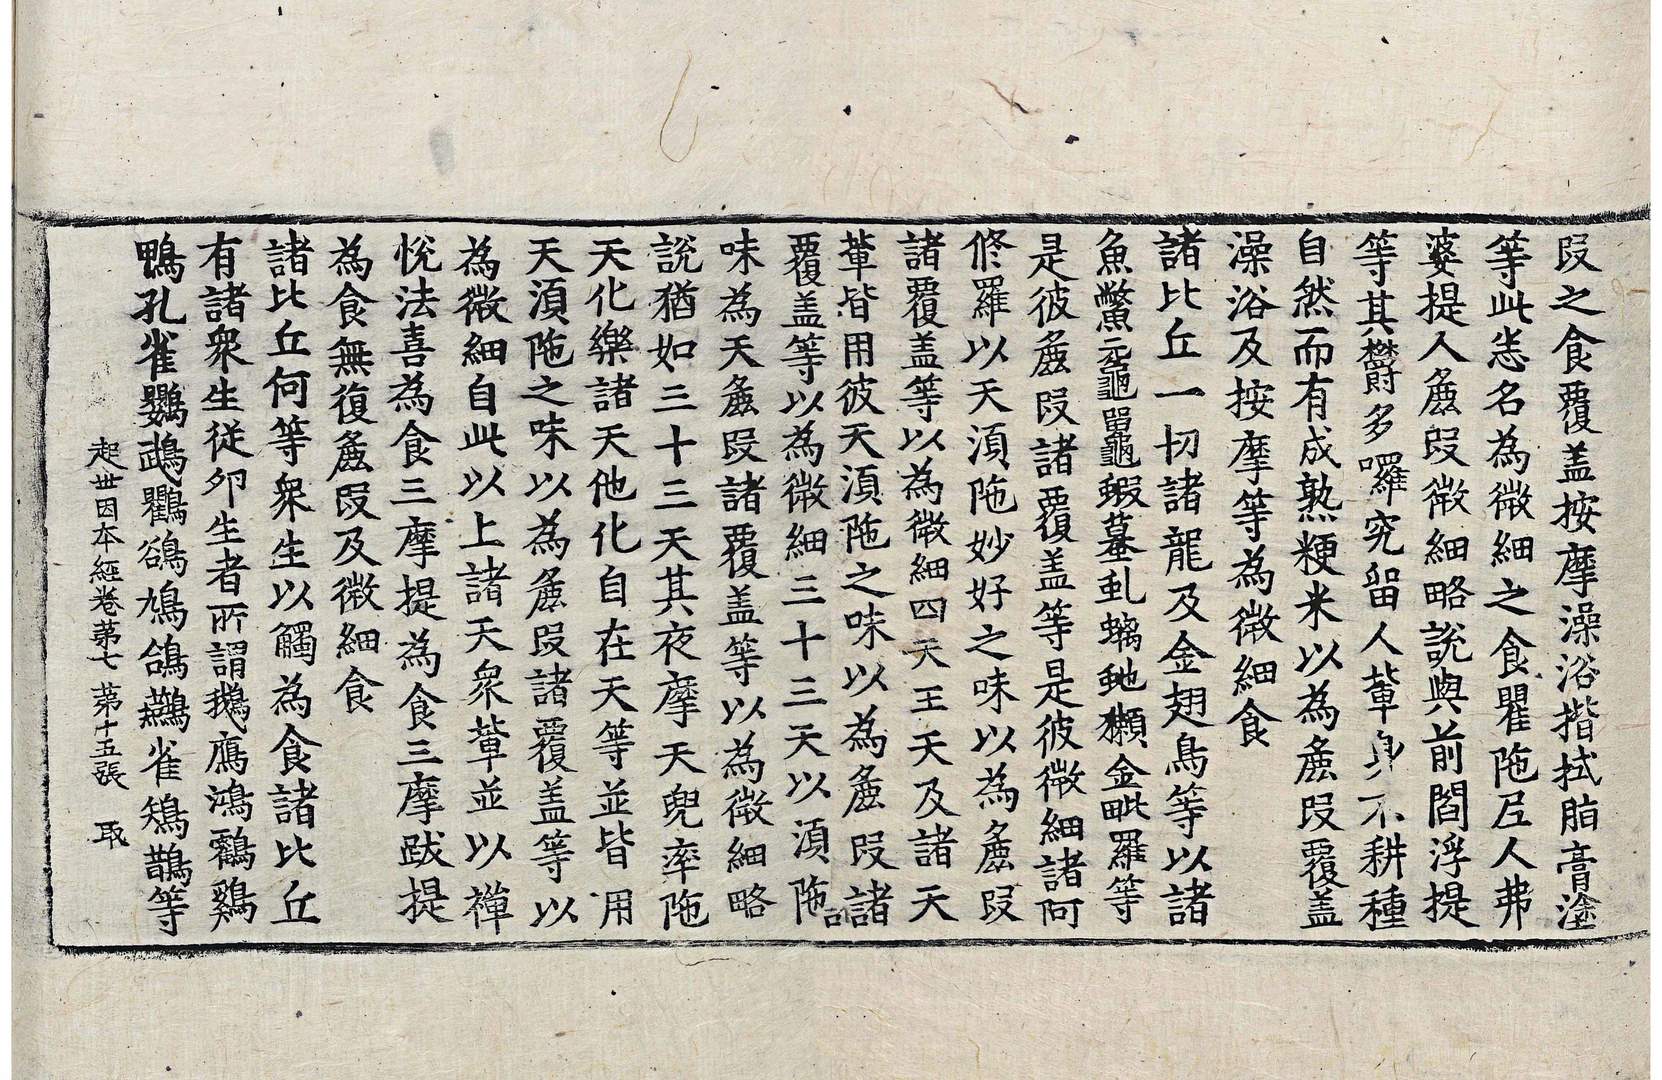 段之食覆盖按摩澡浴揩拭脂膏塗
等此恙名為微細之食瞿陁尼人弗
婆提人麁段微細略說與前閻浮提
等其欝多囉究留人軰身不耕種
自然而有成熟粳米以為麁段覆盖
澡浴及按摩等為微細食
諸比丘一切諸龍及金翅鳥等以諸
魚鱉黿鼉蝦蟇虬螭虵獺金毗羅等
是彼麁段諸覆盖等是彼微細諸阿
修羅以天湏陁妙好之味以為麁段
諸覆盖等以為微細四天王天及諸天
軰皆用彼天湏陁之味以為麁段諸
覆盖等以為微細三十三天以湏陁
味為天麁段諸覆盖等以為微細略
說猶如三十三天其夜摩天兜率陁
天化樂諸天他化自在天等並皆用
天湏陁之味以為麁段諸覆盖等以
為微細自此以上諸天衆軰並以禪
悅法喜為食三摩提為食三摩跋提
為食無復麁段及微細食
諸比丘何等衆生以觸為食諸比丘
有諸衆生從卵生者所謂鵝鴈鴻鸖鷄
鴨孔雀鸚鵡鸜鵒鳩鴿鷰雀雉鵲等
起世因本經卷苐七 苐十五張 取